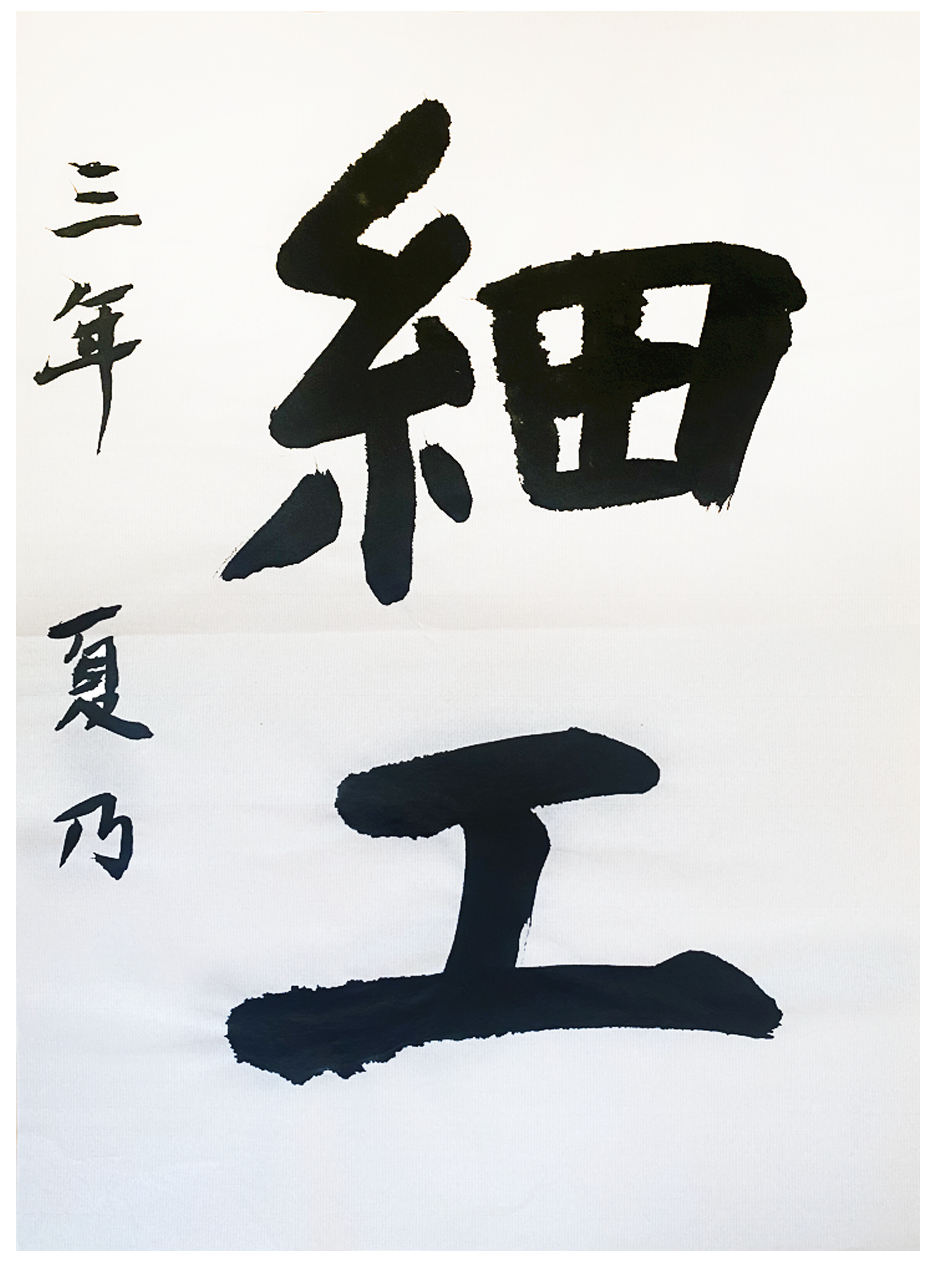 細工
三年 夏乃